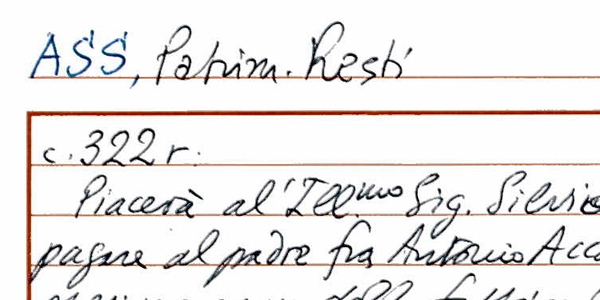 ASS, Patrim. Resti
c. 322 r.
Piacerà al'Ill.mo Sig. Silvio
pagare al padre fra Antonio Acc